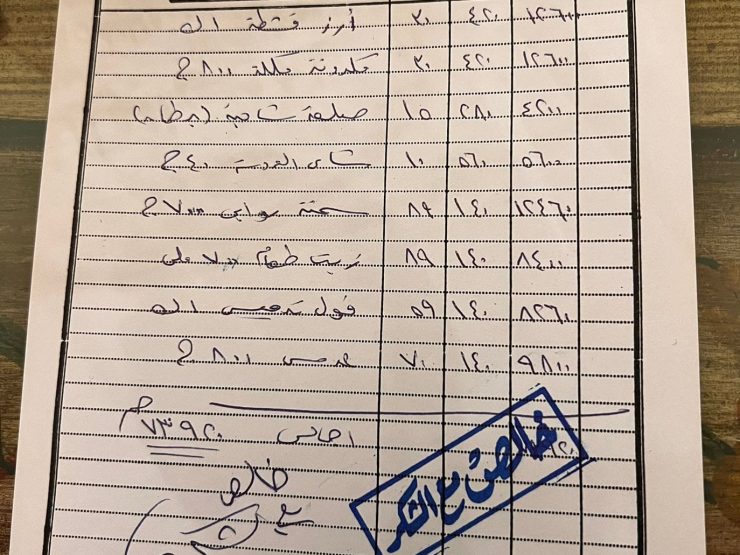 أرز قشطة ١ك ٣٠ ٤٢٠ ١٢٦٠٠
مكرونة ملكة ٨٠٠ ج ٣٠ ٤٢٠ ١٢٦٠٠
صلصة ١٥ ٢٨٠ ٤٢٠٠
شاى العروسة ٤٠ ج ١٠ ٥٦٠ ٥٦٠٠
سمنة روابي ٧٠٠ ج ٨٩ ١٤٠ ١٢٤٦٠
زيت طعام ٧٠٠ ملي ١٤٠ ٨٤٠٠
فول تدميس ١ك ٥٩ ١٤٠ ٨٢٦٠
عدس ٨٠٠ ج ٧٠ ١٤٠ ٩٨٠٠
اجمالى ٧٣٩٢٠
خالص مع الشكر
خالص